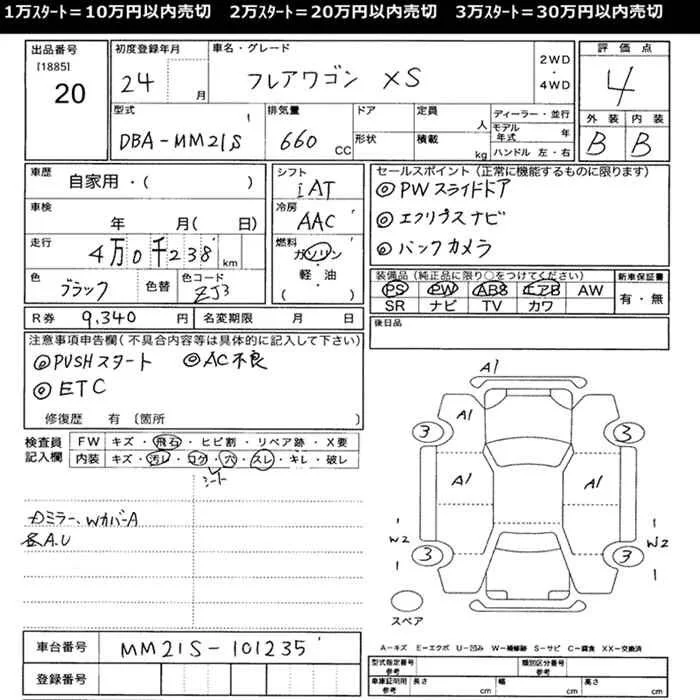 1万ｽﾀｰﾄ＝10万円以内売切　2万ｽﾀｰﾄ＝20万円以内売切　3万ｽﾀｰﾄ＝30万円以内売切
出品番号
[1885]
20
初度登録年月
24 月
車名・グレード
フレアワゴン XS
2WD・4WD
評価点
4
型式
DBA-MM21S
排気量
660 CC
ドア
形状
定員 人
積載 kg
ディーラー・並行
モデル年式 年
ハンドル 左・右
外装 内装
B B
車歴
自家用・( )
車検
年 月( 日)
走行
4万0千238 km
色
ブラック
色替
色コード
ZJ3
シフト
iAT
冷房
AAC
燃料
ガソリン
軽・油
( )
セールスポイント (正常に機能するものに限ります)
◎PWスライドドア
◎エクリプスナビ
◎バックカメラ
装備品 (純正品に限り○をつけてください)
PS PW ABS エアB AW
SR ナビ TV カワ
新車保証書
有・無
R券 9,340 円
名変期限 月 日
後日品
注意事項申告欄 (不具合内容等は具体的に記入して下さい)
◎PUSHスタート ◎AC不良
◎ETC
修復歴 有 〔箇所 〕
検査員記入欄
FW キズ・飛石・ヒビ割・リペア跡・X要
内装 キズ・汚レ・コゲ・穴・スレ・キレ・破レ
シート
カミラー、WカバーA
各A.U
A1
A1
3 3
A1 A1
W2 W2
3 3
スペア
A－キズ E－エクボ U－凹み W－補修跡 S－サビ C－腐食 XX－交換済
車台番号 MM21S-101235
登録番号
型式指定番号 参考
類別区分番号 参考
車庫証明用 参考
長さ cm 幅 cm 高さ cm